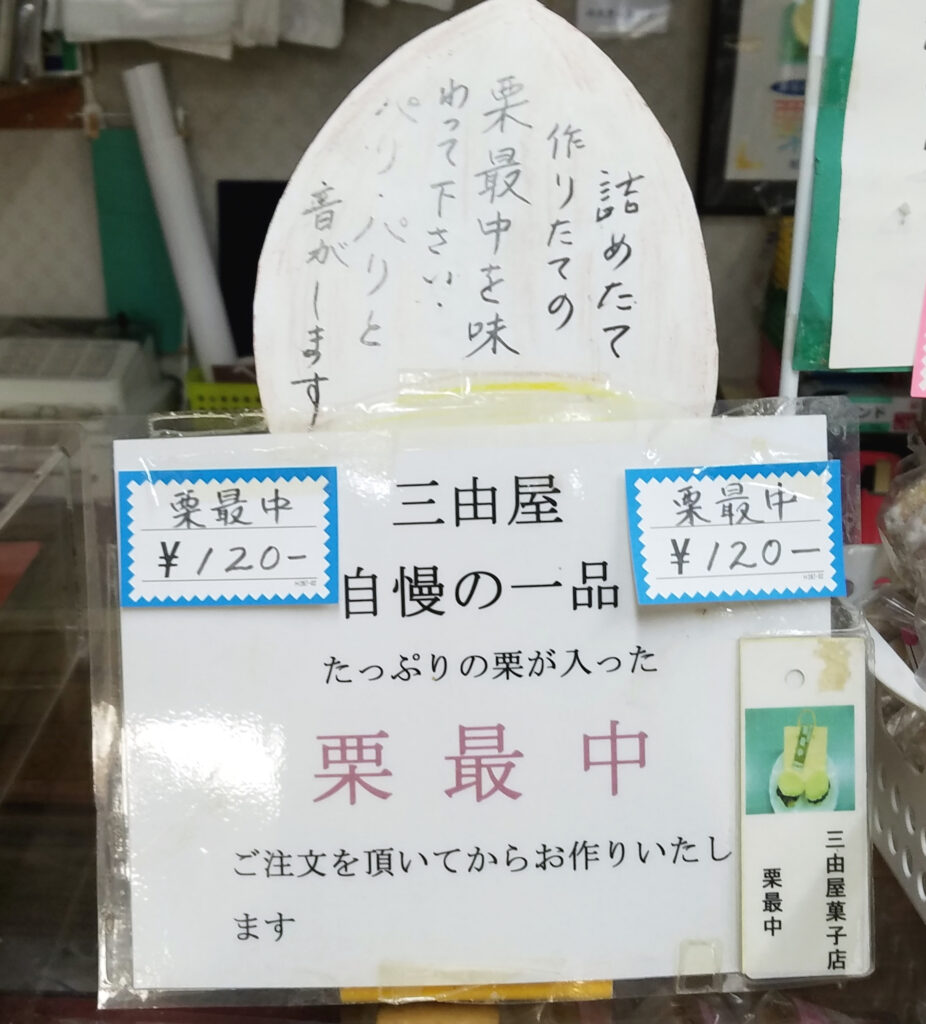 詰めたて
作りたての
栗最中を味
わって下さい・
パリ・パリと
音がします
栗最中
¥120-
三由屋
自慢の一品
栗最中
¥120-
たっぷりの栗が入った
栗最中
ご注文を頂いてからお作りいたし
ます
三由屋菓子店
栗最中